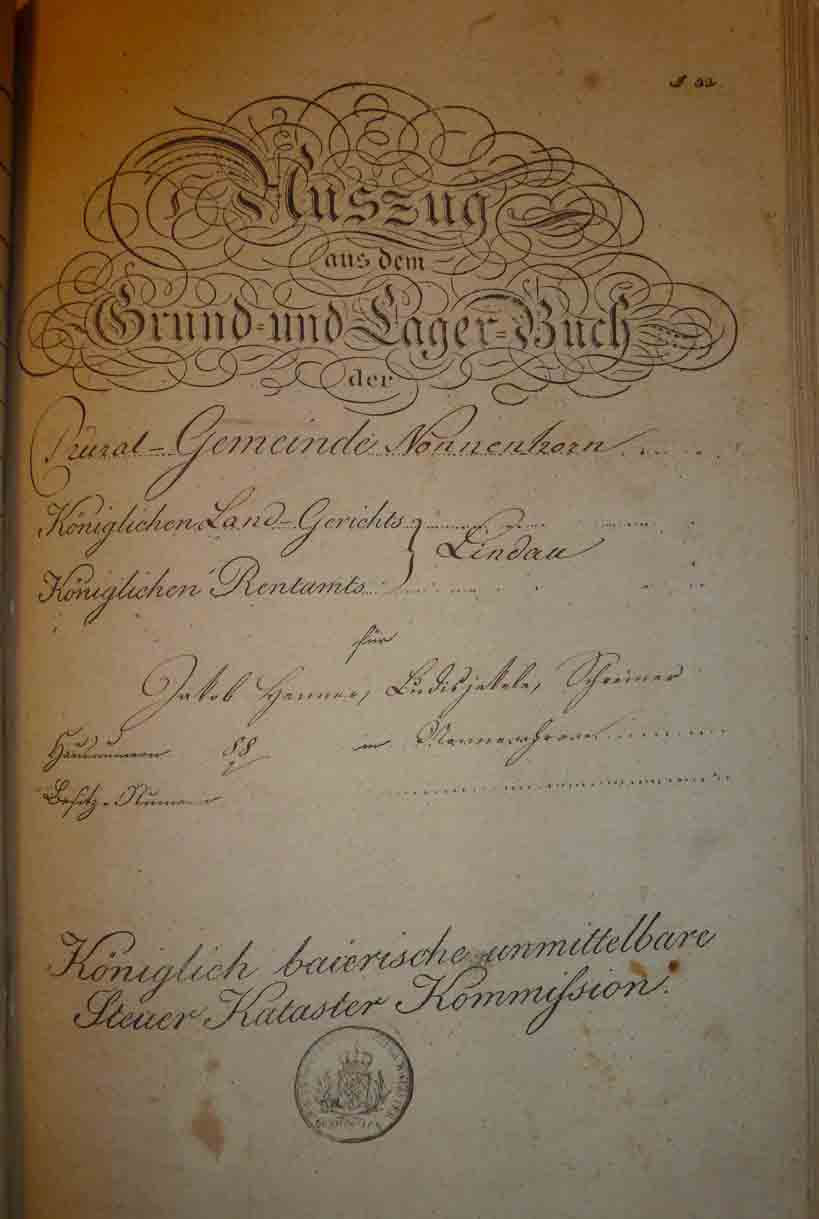 Auszug
aus dem
Grund-und Lager-Buch
der
Rural-Gemeinde Nonnenhorn
Königlichen Land-Gerichts
Lindau
Königlichen Rentamts
für
Jakob Hener, Ludisjakele, Schreiner
Hausnummer 88 in Nonnenhorn
Besitz-Numer
Königlich baierische unmittelbare
Steuer Kataster Kommission.